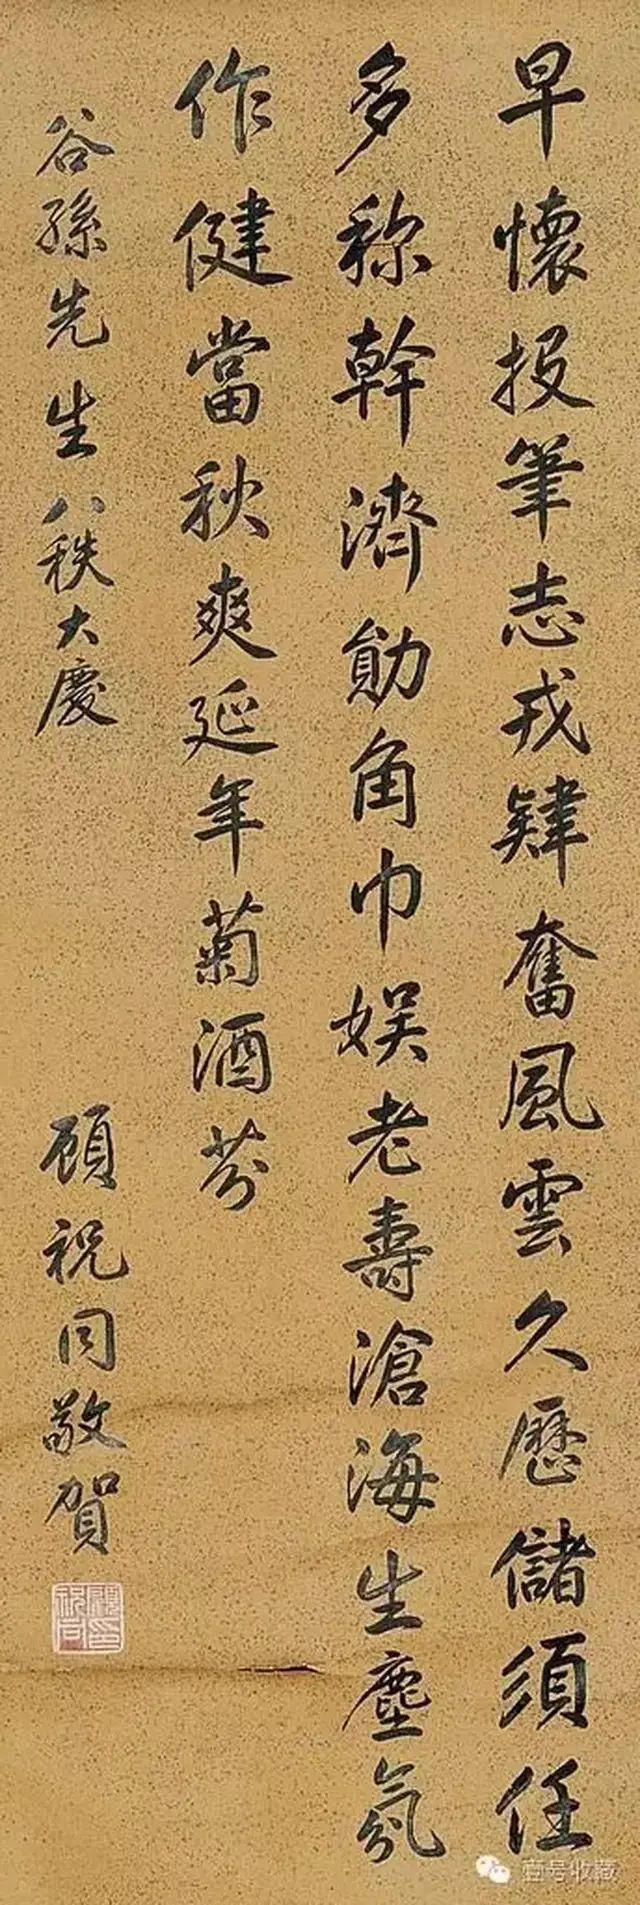 早懷投筆志戎肄奮風雲久歷儲須任
多称幹濟勛角巾娱老壽滄海生塵氛
作健當秋爽延年菊酒芬
谷孫先生八秩大慶
顧祝同敬賀
顧祝同印
壹号收藏